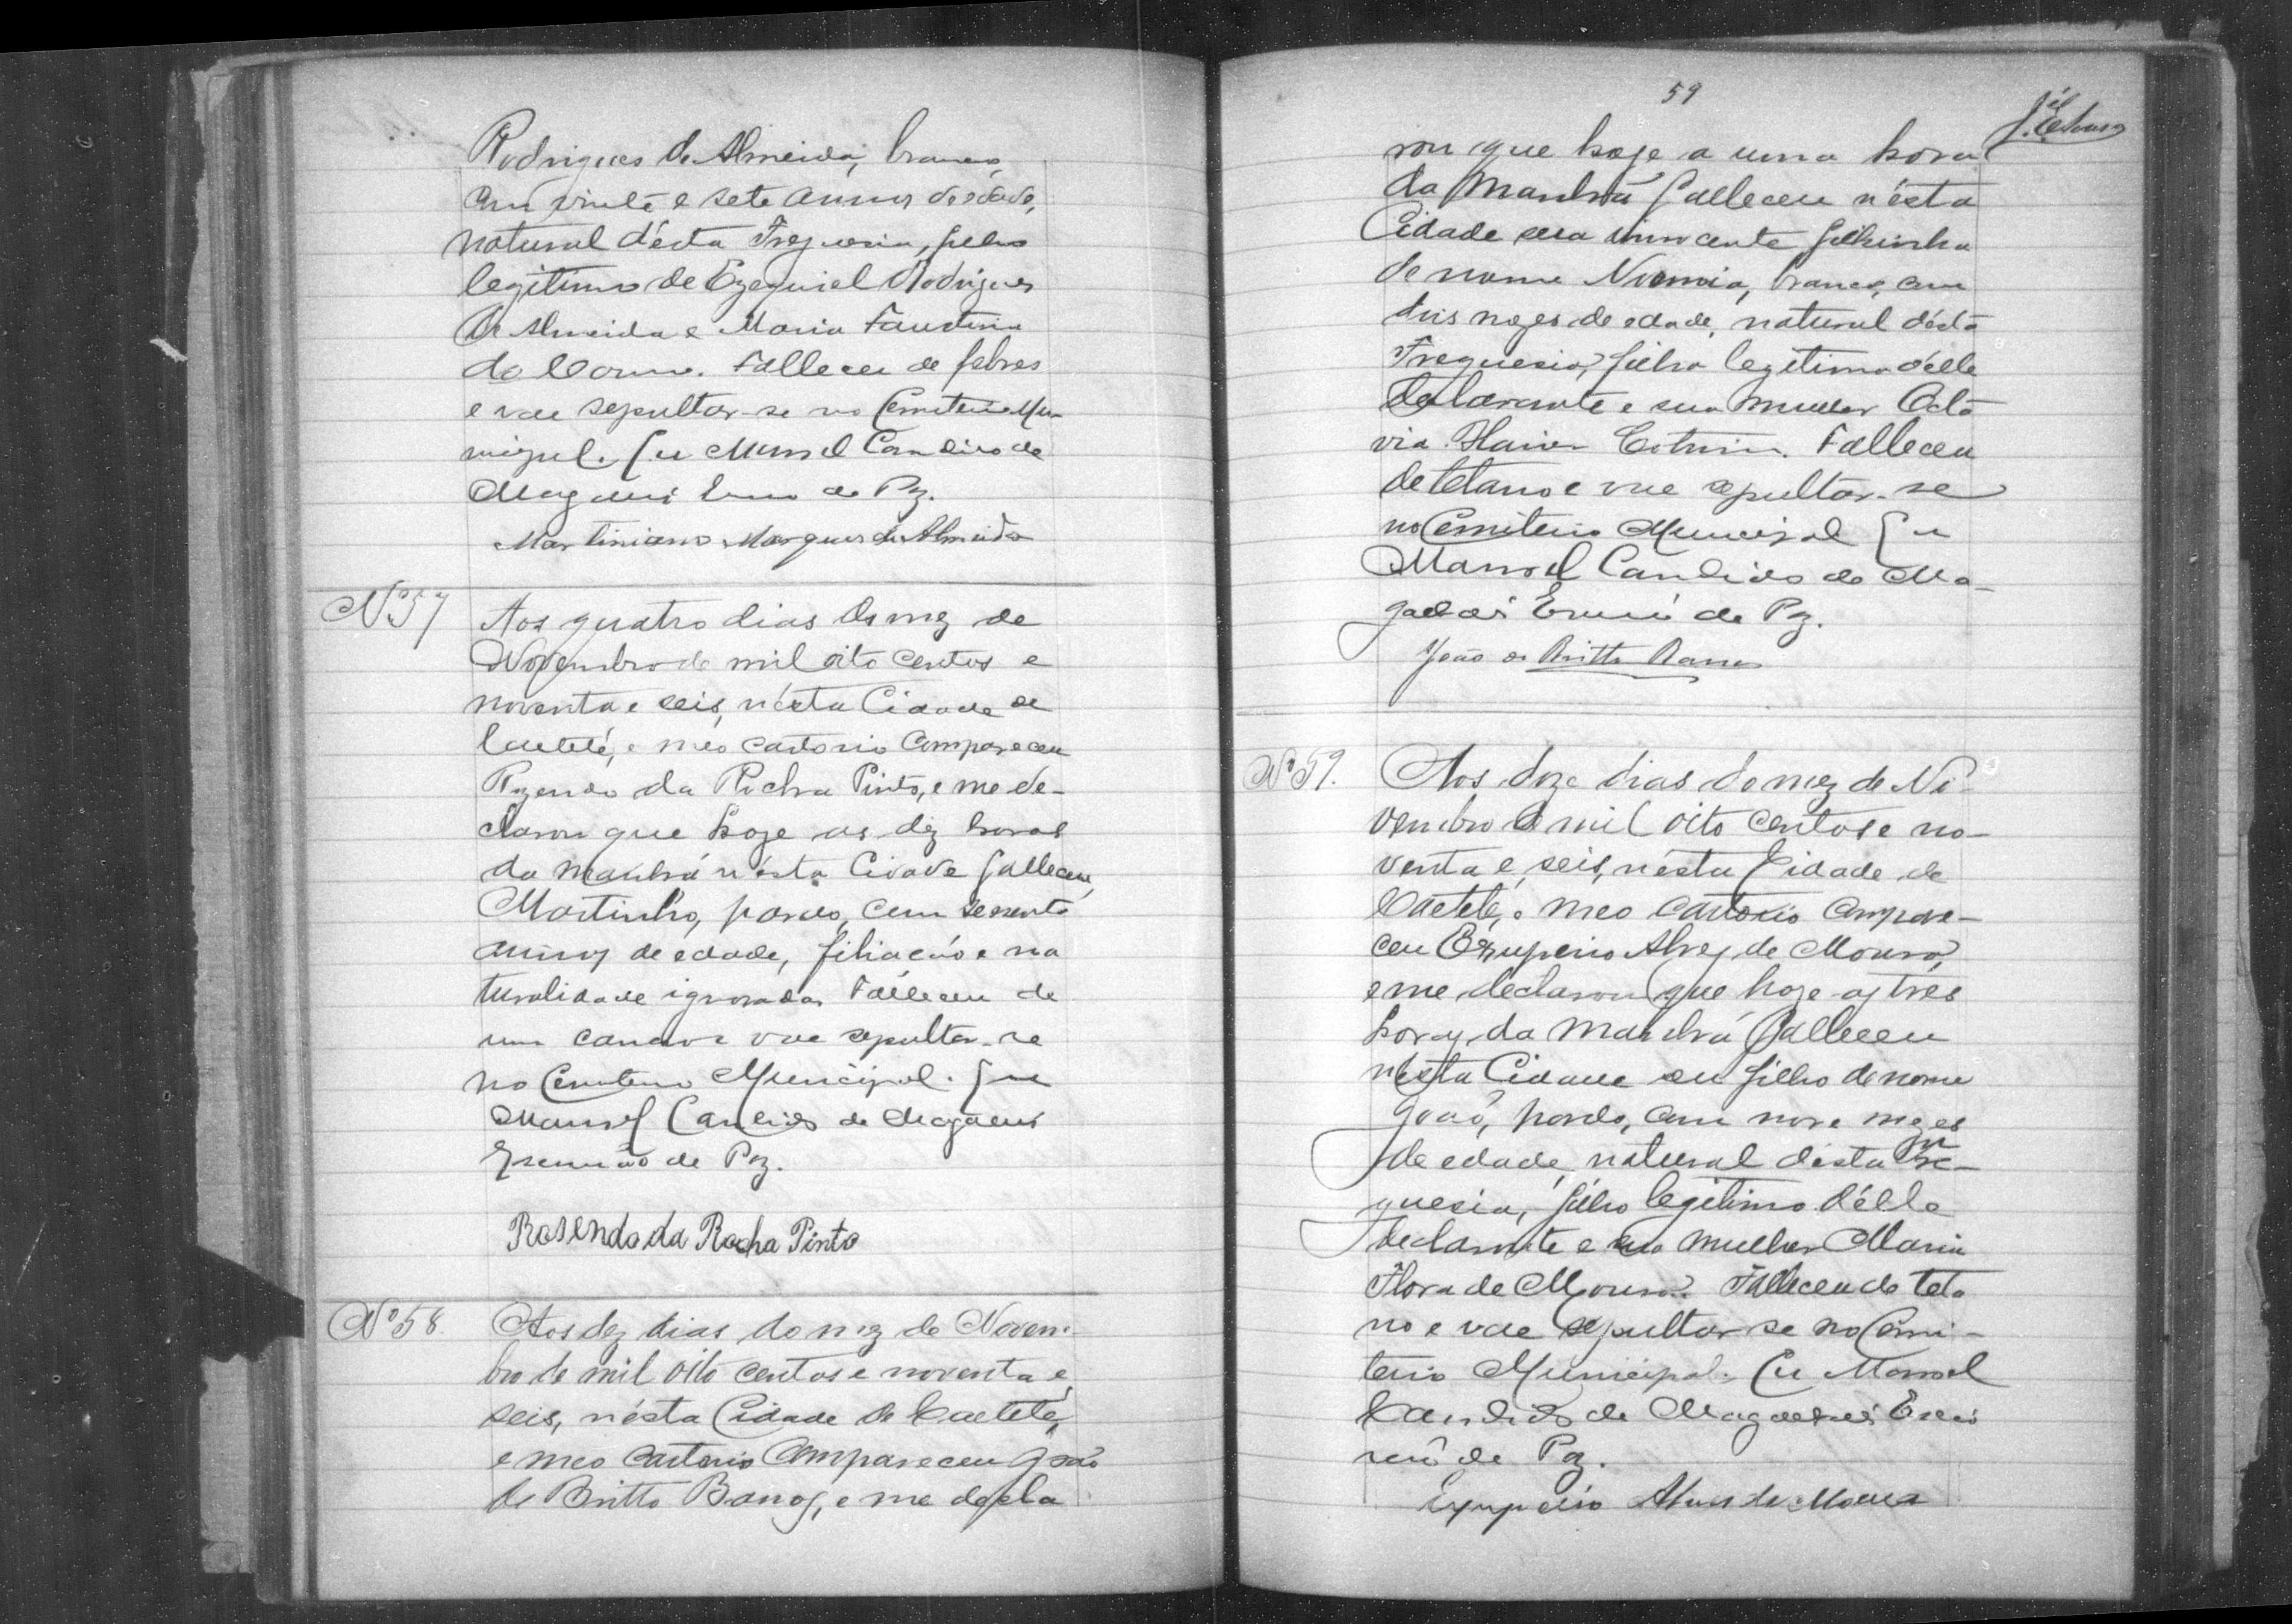 Rodrigues de Almeida, branco,
com vinte e sete annos de edade,
natural d'ésta Freguesia, filho
legitimo de Ezequiel Rodrigues
de Almeida e Maria Faustina
do Carmo. Falleceu de febres
e vae sepultar-se no Cemiterio Mu-
nicipal. Eu Manoel Candido de
Magalhães Escrivão de Paz.
Martiniano Marques de Almeida
Nº 57
Aos quatro dias do mez de
Novembro de mil oito centos e
noventa e seis, n'ésta Cidade de
Caeteté, e meo Cartorio Compareceu
Rozendo da Rocha Pinto, e me de-
clarou que hoje as dez horas
da manhã n'ésta Cidade falleceu,
Martinho, pardo, com secenta
annos de edade, filiação e na
turalidade ignoradas Falleceu de
um cancro e vae sepultar-se
no Cemiterio Municipal. Eu
Manoel Candido de Magalhães
Escrivão de Paz.
Rosendo da Rocha Pinto
Nº 58
Aos dez dias do mez de Novem-
bro de mil oito centos e noventa e
seis, n'ésta Cidade de Caeteté,
e meo Cartorio Compareceu João
de Britto e me decla
59
rou que hoje a uma hora
da manhã falleceu n'ésta
Cidade sua innocente filhinha
de nome Noemia, branca, com
dois mezes de edade, natural d'ésta
Freguesia, filha legitima d'élle
declarante e sua mulher Octa
via Cotrim. Falleceu
de tetano e vae sepultar-se
no Cemiterio Municipal Eu
Manoel Candido de Ma-
galhães Escrivão de Paz.
João de Britto
Nº 59.
Aos doze dias do mez de No-
vembro de mil oito centos e no-
venta e seis, n'ésta Cidade de
Caeteté, e meo Cartorio Compare-
ceu Exuperio Alves de Moura,
e me declarou que hoje as tres
horas da manhã falleceu
n'ésta Cidade seu filho de nome
João, pardo, com nove mezes
de edade, natural d'ésta Fre-
guesia, filho legitimo d'élle
declarante e sua mulher Maria
Flora de Moura. Falleceu de teta
no e vae sepultar-se no Cemi-
terio Municipal. Eu Manoel
Candido de Magalhães Escri
vão de Paz.
Exuperio Alves de Moura